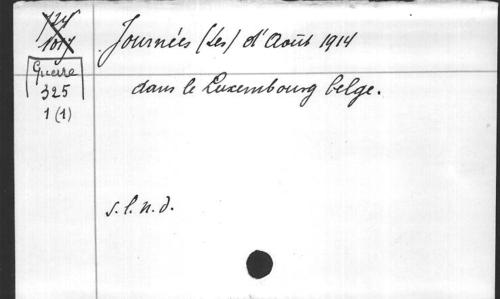 124
1017
Guerre
325
1 (1)
Journées (Les) d'Août 1914
dans le Luxembourg belge.
s. l. n. d.